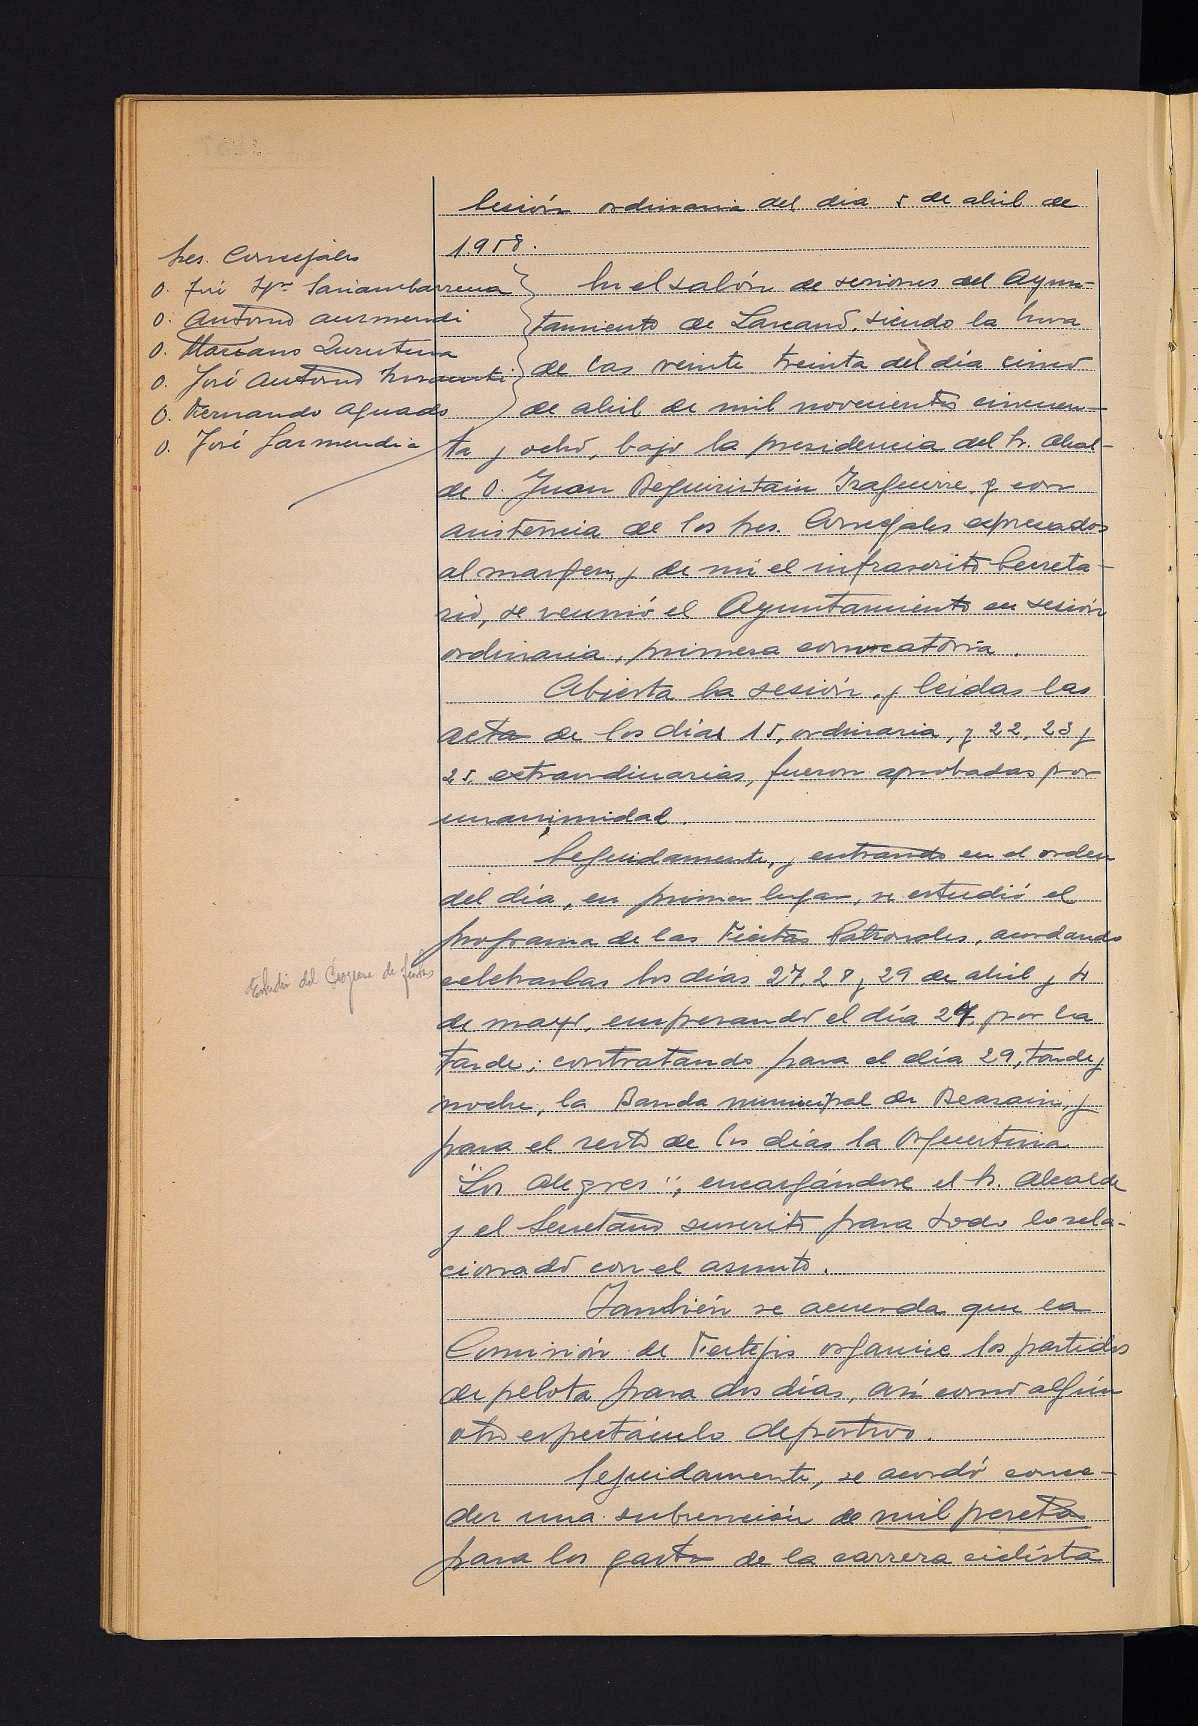 Sesión ordinaria del dia 5 de abril de
1.958.
Sres. Concejales
D. José Igº Sariambarrena
D. Antonio Aurmendi
D. Mariano Zurutuza
D. José Antonio
D. Fernando Aguado
D. José Garmendia
En el salón de sesiones del Ayun-
tamiento de Lazcano, siendo la hora
de las veinte treinta del día cinco
de abril de mil novecientos cincuen-
ta y ocho, bajo la presidencia del Sr. Alcal-
de D. Juan Beguiristain Izaguirre, y con
asistencia de los Sres. Concejales expresados
al margen, y de mi el infrascrito Secreta-
rio, se reunió el Ayuntamiento en sesión
ordinaria, primera convocatoria.
Abierta la sesión, y leidas las
acta de los días 15, ordinaria, y 22, 23 y
25 extraordinarias, fueron aprobadas por
unanimidad.
Seguidamente, y entrando en el orden
del día, en primer lugar, se estudió el
programa de las Fiestas Patronales, acordando
Estudio del Programa de fiestas
celebrarlas los días 27, 28 y 29 de abril y 4
de mayo, empezando el día 27, por la
tarde; contratando para el día 29, tarde y
noche, la Banda municipal de Beasain, y
para el resto de los días la Orquestina
"Los Alegres", encargándose el Sr. Alcalde
y el Secretario suscrito para todo lo rela-
cionado con el asunto.
También se acuerda que la
Comisión de Festejos organice los partidos
de pelota para dos días, así como algún
otro espectáculo deportivo.
Seguidamente, se acordó conce-
der una subvención de mil pesetas
para los gastos de la carrera ciclista